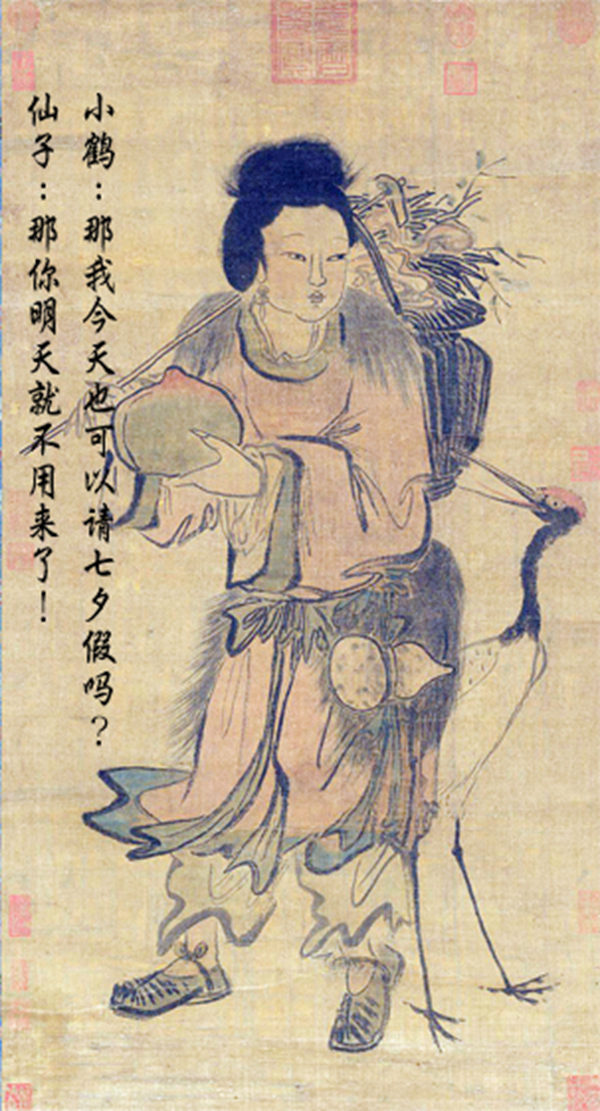 小鹤：那我今天也可以请七夕假吗？
仙子：那你明天就不用来了！